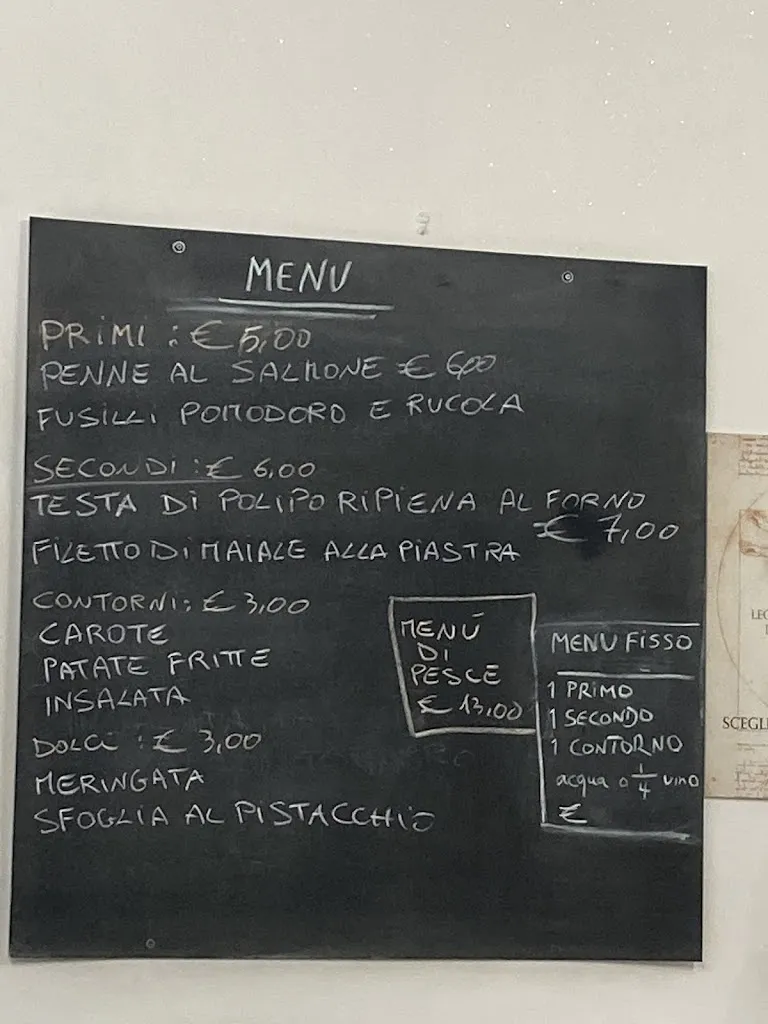 MENU
PRIMI : € 5,00
PENNE AL SALMONE € 6,00
FUSILLI POMODORO E RUCOLA
SECONDI : € 6,00
TESTA DI POLIPO RIPIENA AL FORNO
€ 7,00
FILETTO DI MAIALE ALLA PIASTRA
CONTORNI: € 3,00
CAROTE
PATATE FRITTE
INSALATA
DOLCI : € 3,00
MERINGATA
SFOGLIA AL PISTACCHIO
MENÚ
DI
PESCE
€ 13,00
MENU FISSO
1 PRIMO
1 SECONDO
1 CONTORNO
acqua o 1/4 vino
€
SCEGL